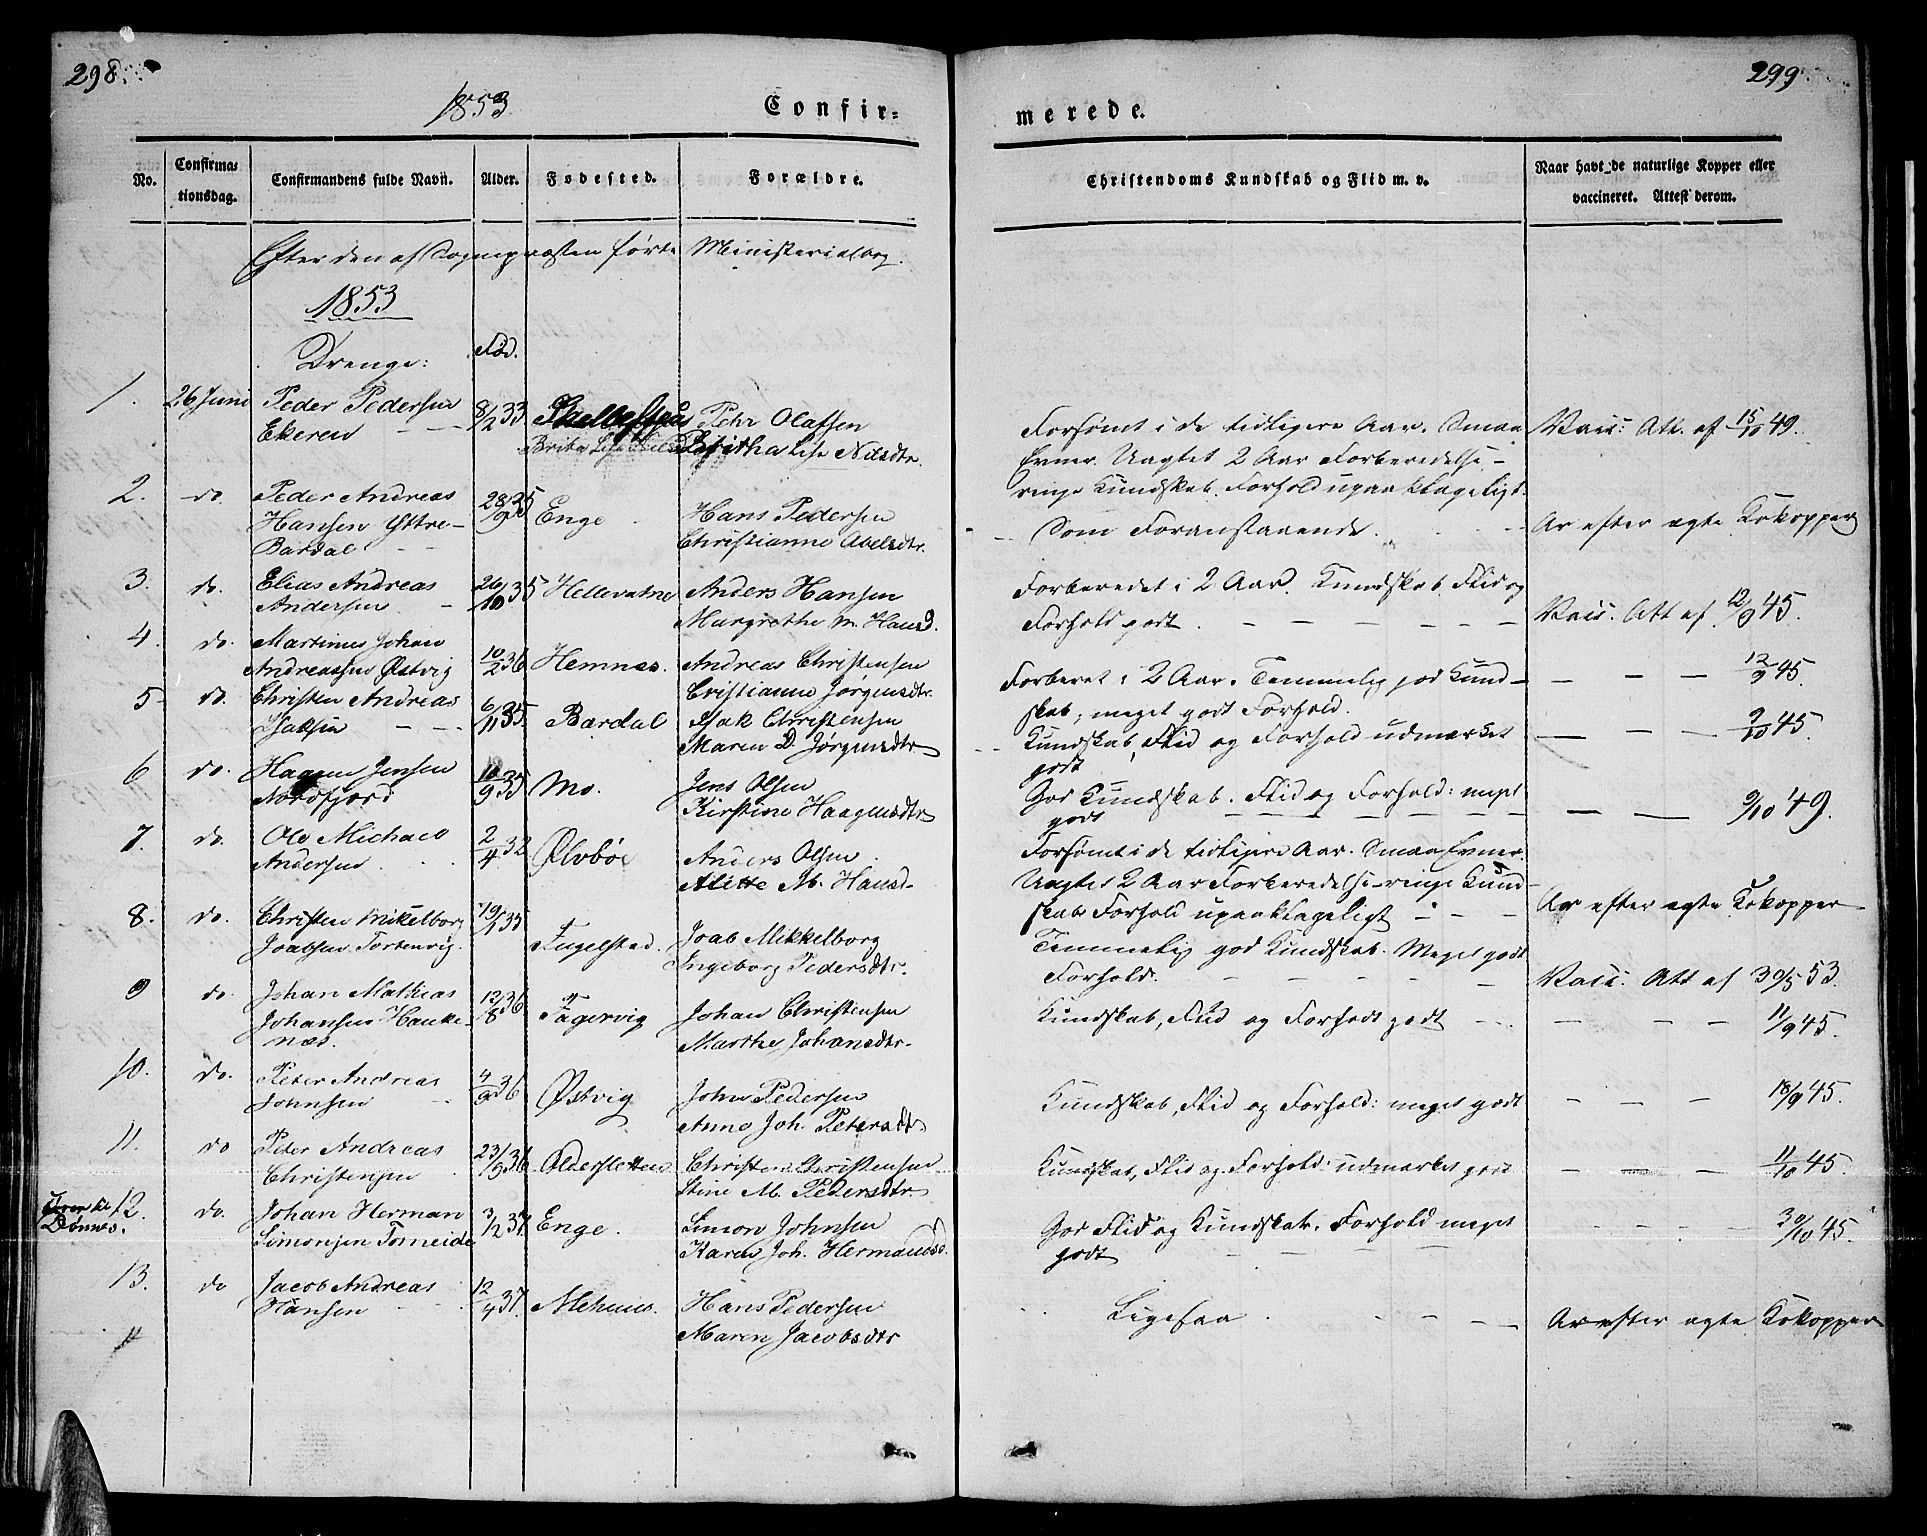 298.
299.
1853.
Confir=
merede.
No.
Confirma=
tionsdag.
Confirmandens fulde Navn.
Alder.
Fødested.
Forældre.
Christendoms Kundskab og Flid m. v.
Naar havt de naturlige Kopper eller
vaccineret. Attest derom.
Efter den af Sognepræsten førte Ministerialbog.
1853
Drenge:
Fød.
1. 26 Juni Peder Pedersen 8/2 33 Pehr Olafsen
Ekeren Britha Lise Nilsdtr.
Forsømt i de tidligere Aar. Smaa Vacc: Att. af 15/10 49.
Evner. Uagtet 2 Aar Forberedelse -
ringe Kundskab. Forhold upaaklageligt.
2. do. Peder Andreas 28/9 35 Enge Hans Pedersen
Hansen Yttre- Christianne Abelsdtr.
Bardal
Som Foranstaaende. Ar efter ægte Kokopper
3. do. Elias Andreas 26/10 35 Hellevatne Anders Hansen
Andersen Margrethe M. Hansd.
Forberedet i 2 Aar. Kundskab, Flid og
Forhold godt. Vacc: Att af 12/9 45.
4. do. Martinus Johan 10/2 36 Hemnæs. Andreas Christensen
Andreassen Østvig Cristianne Jørgensdtr.
Forberet i 2 Aar. Temmelig god Kund- 12/9 45.
skab; meget godt Forhold.
5 do. Christen Andreas 6/11 35. Bardal Isak Christensen
Isaksen Maren D. Jørgensdtr
Kundskab, Flid og Forhold udmærket 9/10 45.
godt
6 do. Hagen Jensen 10/9 35 Mo. Jens Olsen
Nordfjord Kirstine Haagensdtr
God Kundskab. Flid og Forhold: meget
godt 9/10 49.
7. do. Ole Michael 2/4 32 Ølvbøe Anders Olsen
Andersen Alette M. Hansd.
Forsømt i de tidligere Aar. Smaa Evner.
Uagtet 2 Aar Forberedelse - ringe Kund-
skab Forhold upaaklageligt Ar efter ægte Kokopper
8. do. Christen Mikelborg 19/1 35 Fugelstad. Joab Mikkelborg
Joabsen Ingeborg Pedersdtr.
Temmelig god Kundskab. Meget godt
Forhold. Vacc: Att af 30/5 53.
9 do. Johan Mathias 12/8 36 Fagervig Johan Christensen
Johansen Hauke- Marthe Johansdtr.
næs.
Kundskab, Flid og Forhold godt 11/9 45.
10. do. Peter Andreas 4/9 36 Østvig John Pedersen
Johnsen Anne Joh. Petersdtr
Kundskab, Flid og Forhold: meget godt 18/9 45.
11. do Peter Andreas 23/9 36 Alderslettens Christen Christensen
Christensen Stine M. Pedersdtr
Kundskab, Flid og Forhold: udmærket godt 11/10 45.
Dønnes. 12. do. Johan Herman 3/2 37 Enge. Simon Johnsen
Simonsen Forneide Karen Joh. Hermansd.
God Flid og Kundskab. Forhold meget 30/10 45.
godt
13. do Jacob Andreas 12/4 37. Hans Pedersen
Hansen Maren Jacobsdtr
Ligesaa. Ar efter ægte Kokopper